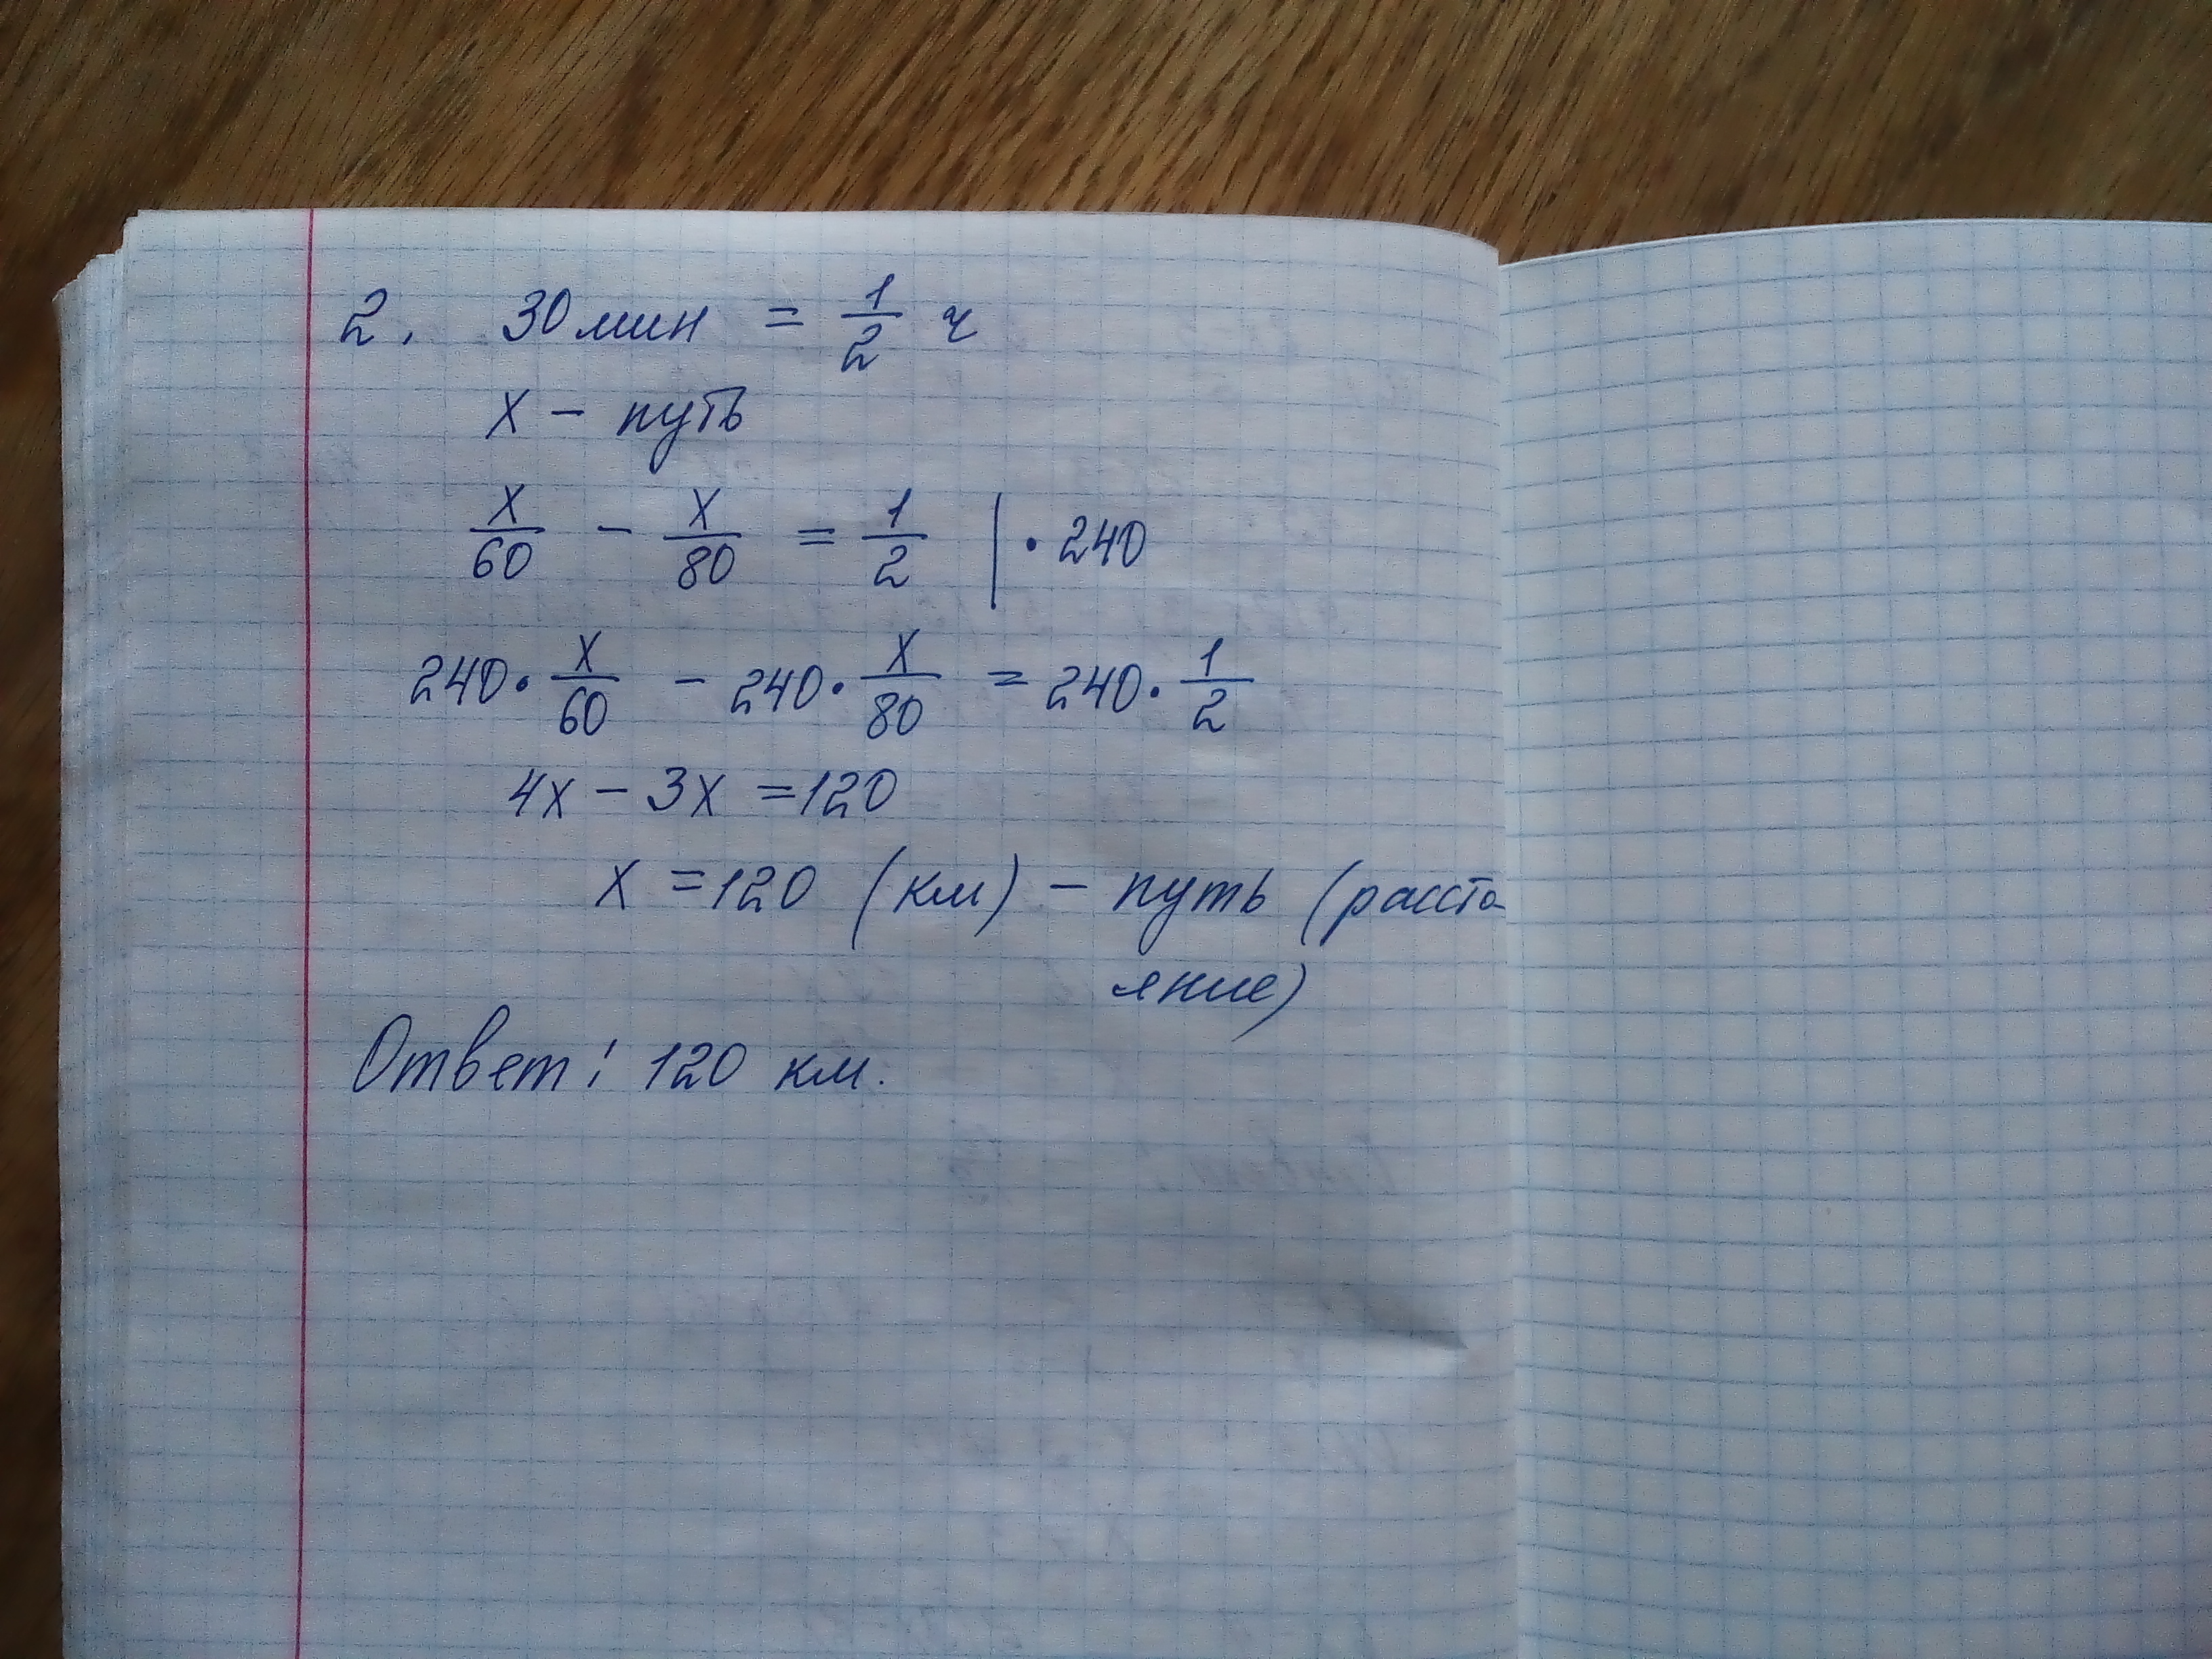 2. 30 мин = 1/2 ч
x – путь
x/60 – x/80 = 1/2 | · 240
240 · x/60 – 240 · x/80 = 240 · 1/2
4x – 3x = 120
x = 120 (км) – путь (рассто-
яние)
Ответ: 120 км.